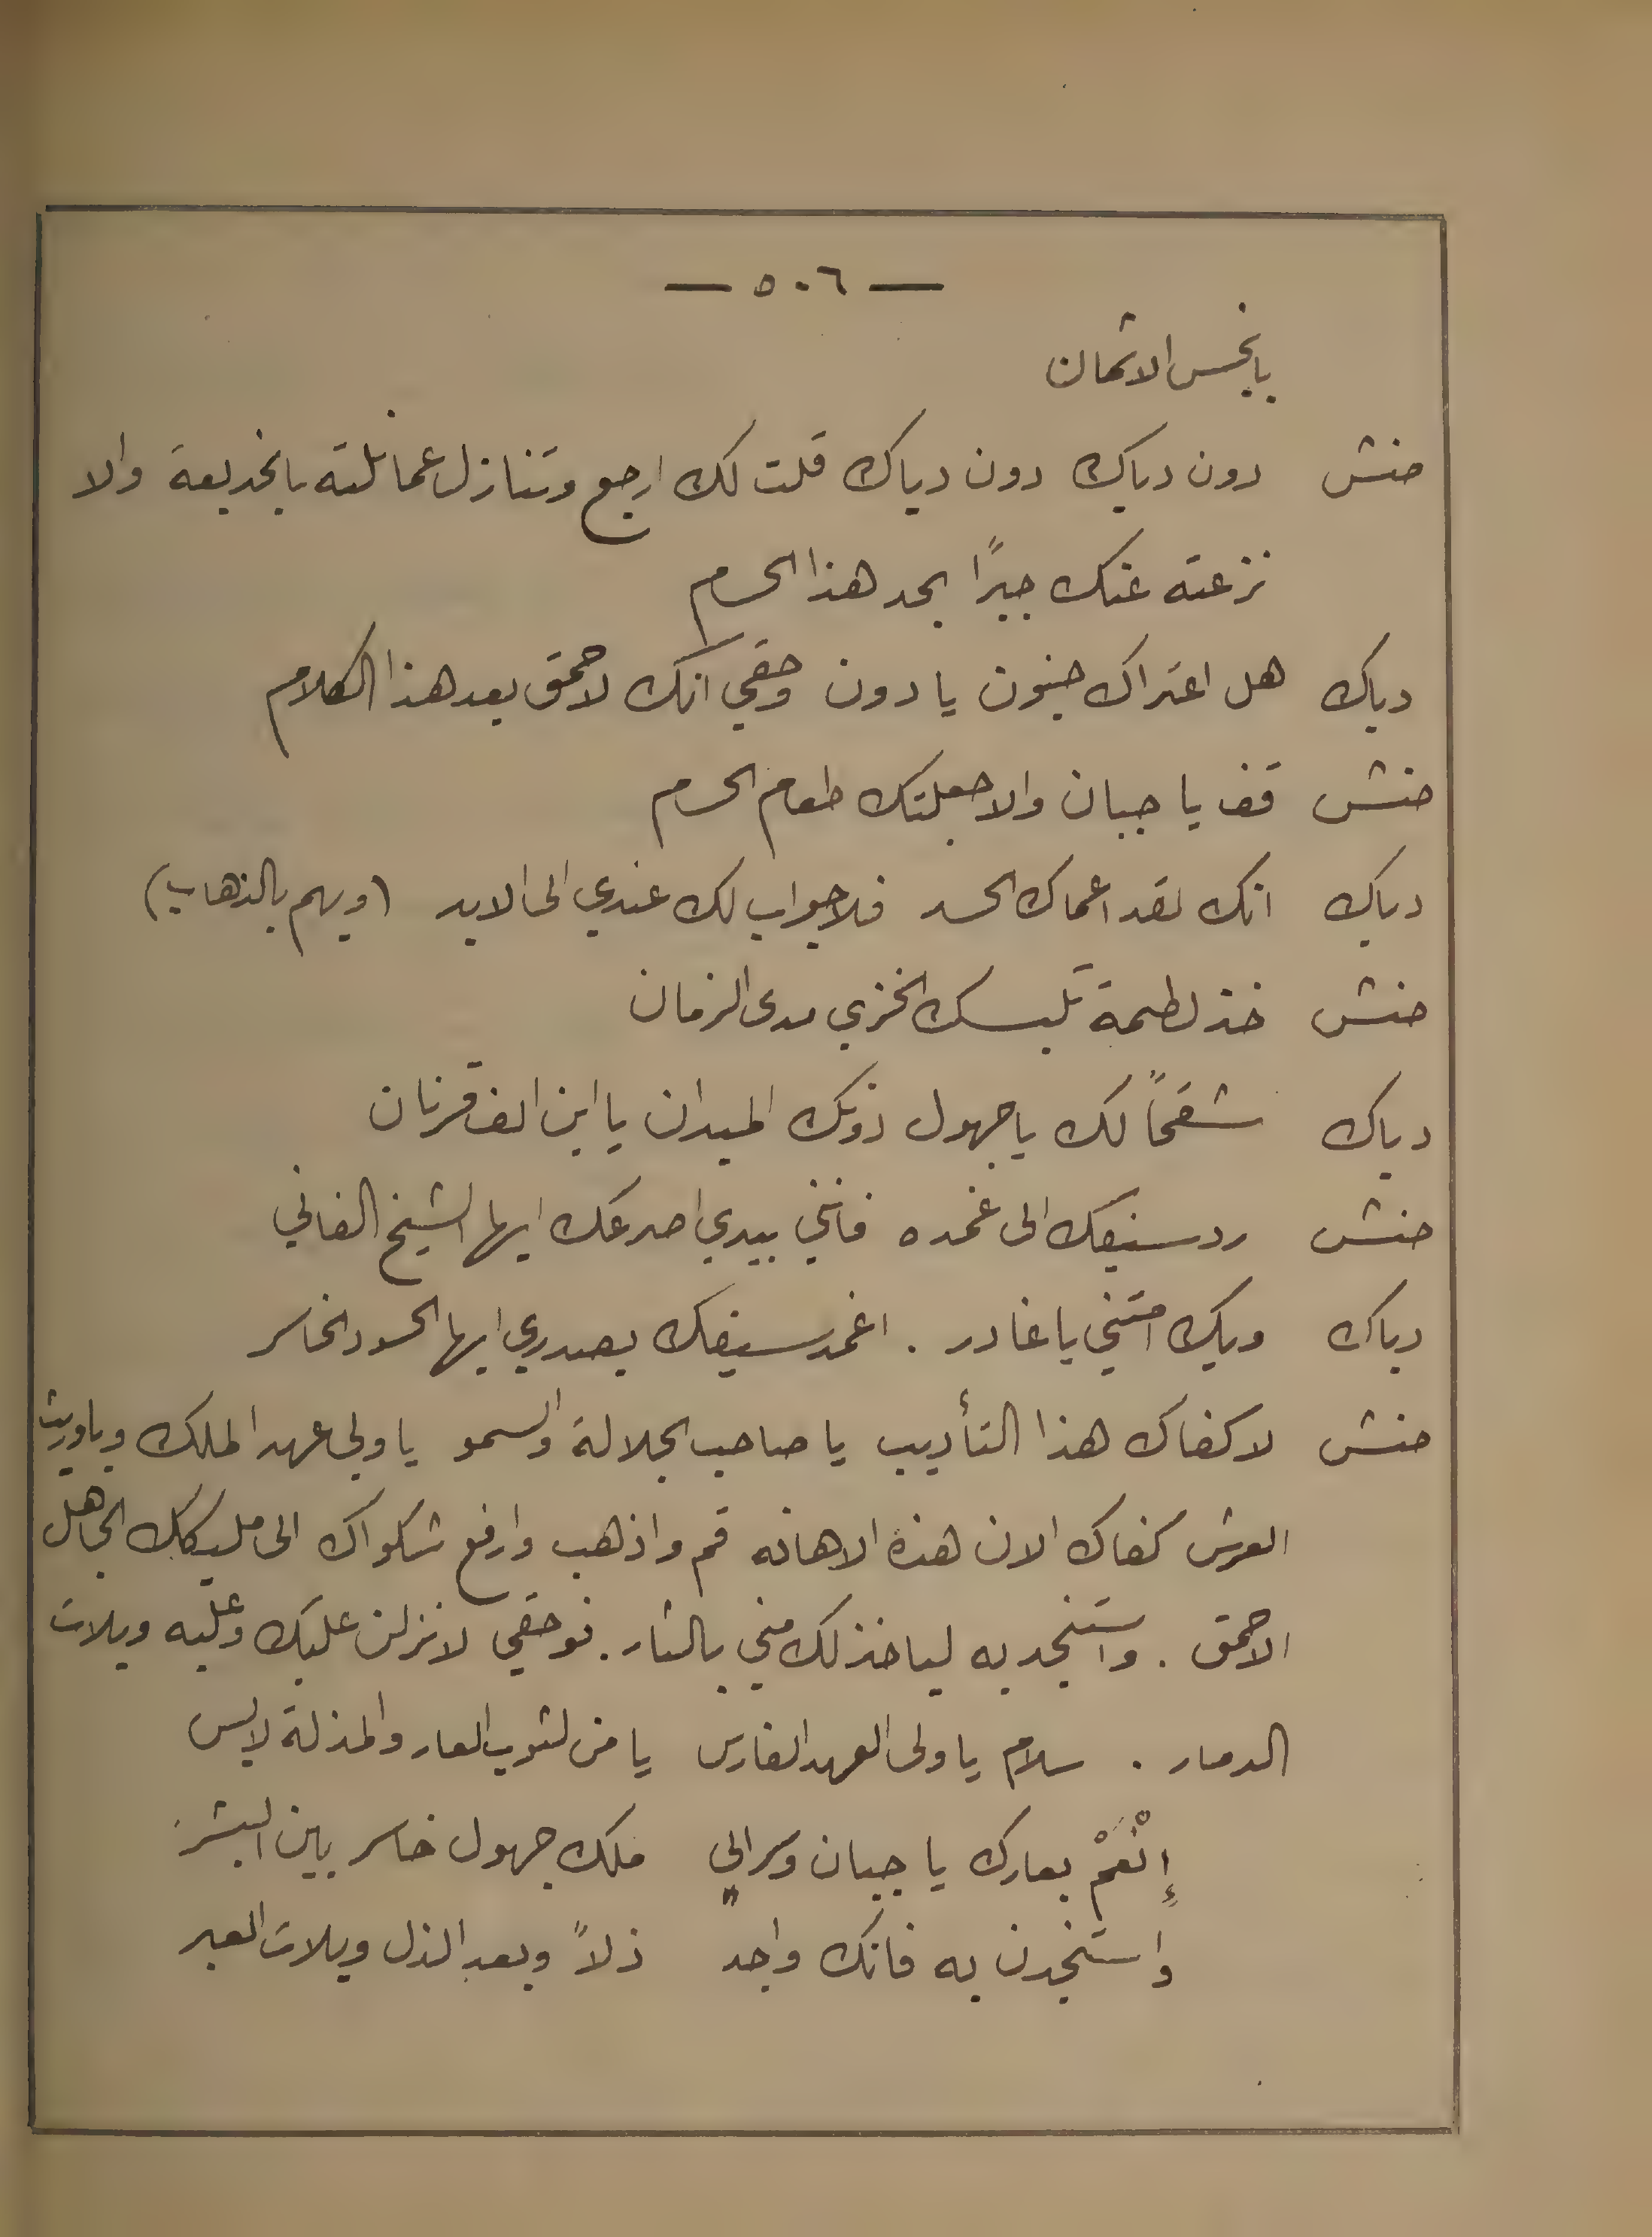 — ٥٠٦ —
بابخس الاثمان
حنش دون دياك دون دياك قلت لك ارجع وتنازل عما نلته بالخديعة والا
نزعته عنك جبرًا بحد هذا الحسام
دياك هل اعتراك جنون يا دون وحقي انك لاحمق بعد هذا الكلام
حنش قف يا جبان والا جعلتك طعام الحسام
دياك انك لقد اعماك الحسد فلا جواب لك عندي الى الابد (ويهم بالذهاب)
حنش خذ لطمة تلبسك الخزي مدى الزمان
دياك شقحًا لك يا جهول دونك الميدان يا ابن الف قرنان
حنش رد سيفك الى غمده فانني بيدي اصرعك ايها الشيخ الفاني
دياك ويك امتني يا غادر . اغمد سيفك بصدري ايها الحسود الخاسر
حنش لا كفاك هذا التأديب يا صاحب الجلالة والسمو يا ولي عهد الملك ويا وريث
العرش كفاك الان هذه الاهانه قم واذهب وارفع شكواك الى مليكك الجاهل
الاحمق . واستنجد به لياخذ لك مني بالثار . فوحقي لانزلن عليك وعليه ويلات
الدمار . سلام يا ولي العهد الفارس يا من لثوب العار والمذلة لابس
إنْعَمْ بعارك يا جبان وسر الى ملك جهول خاسر بين البشر
واستنجدن به فانك واجد ذلاً وبعد الذل ويلات العبر